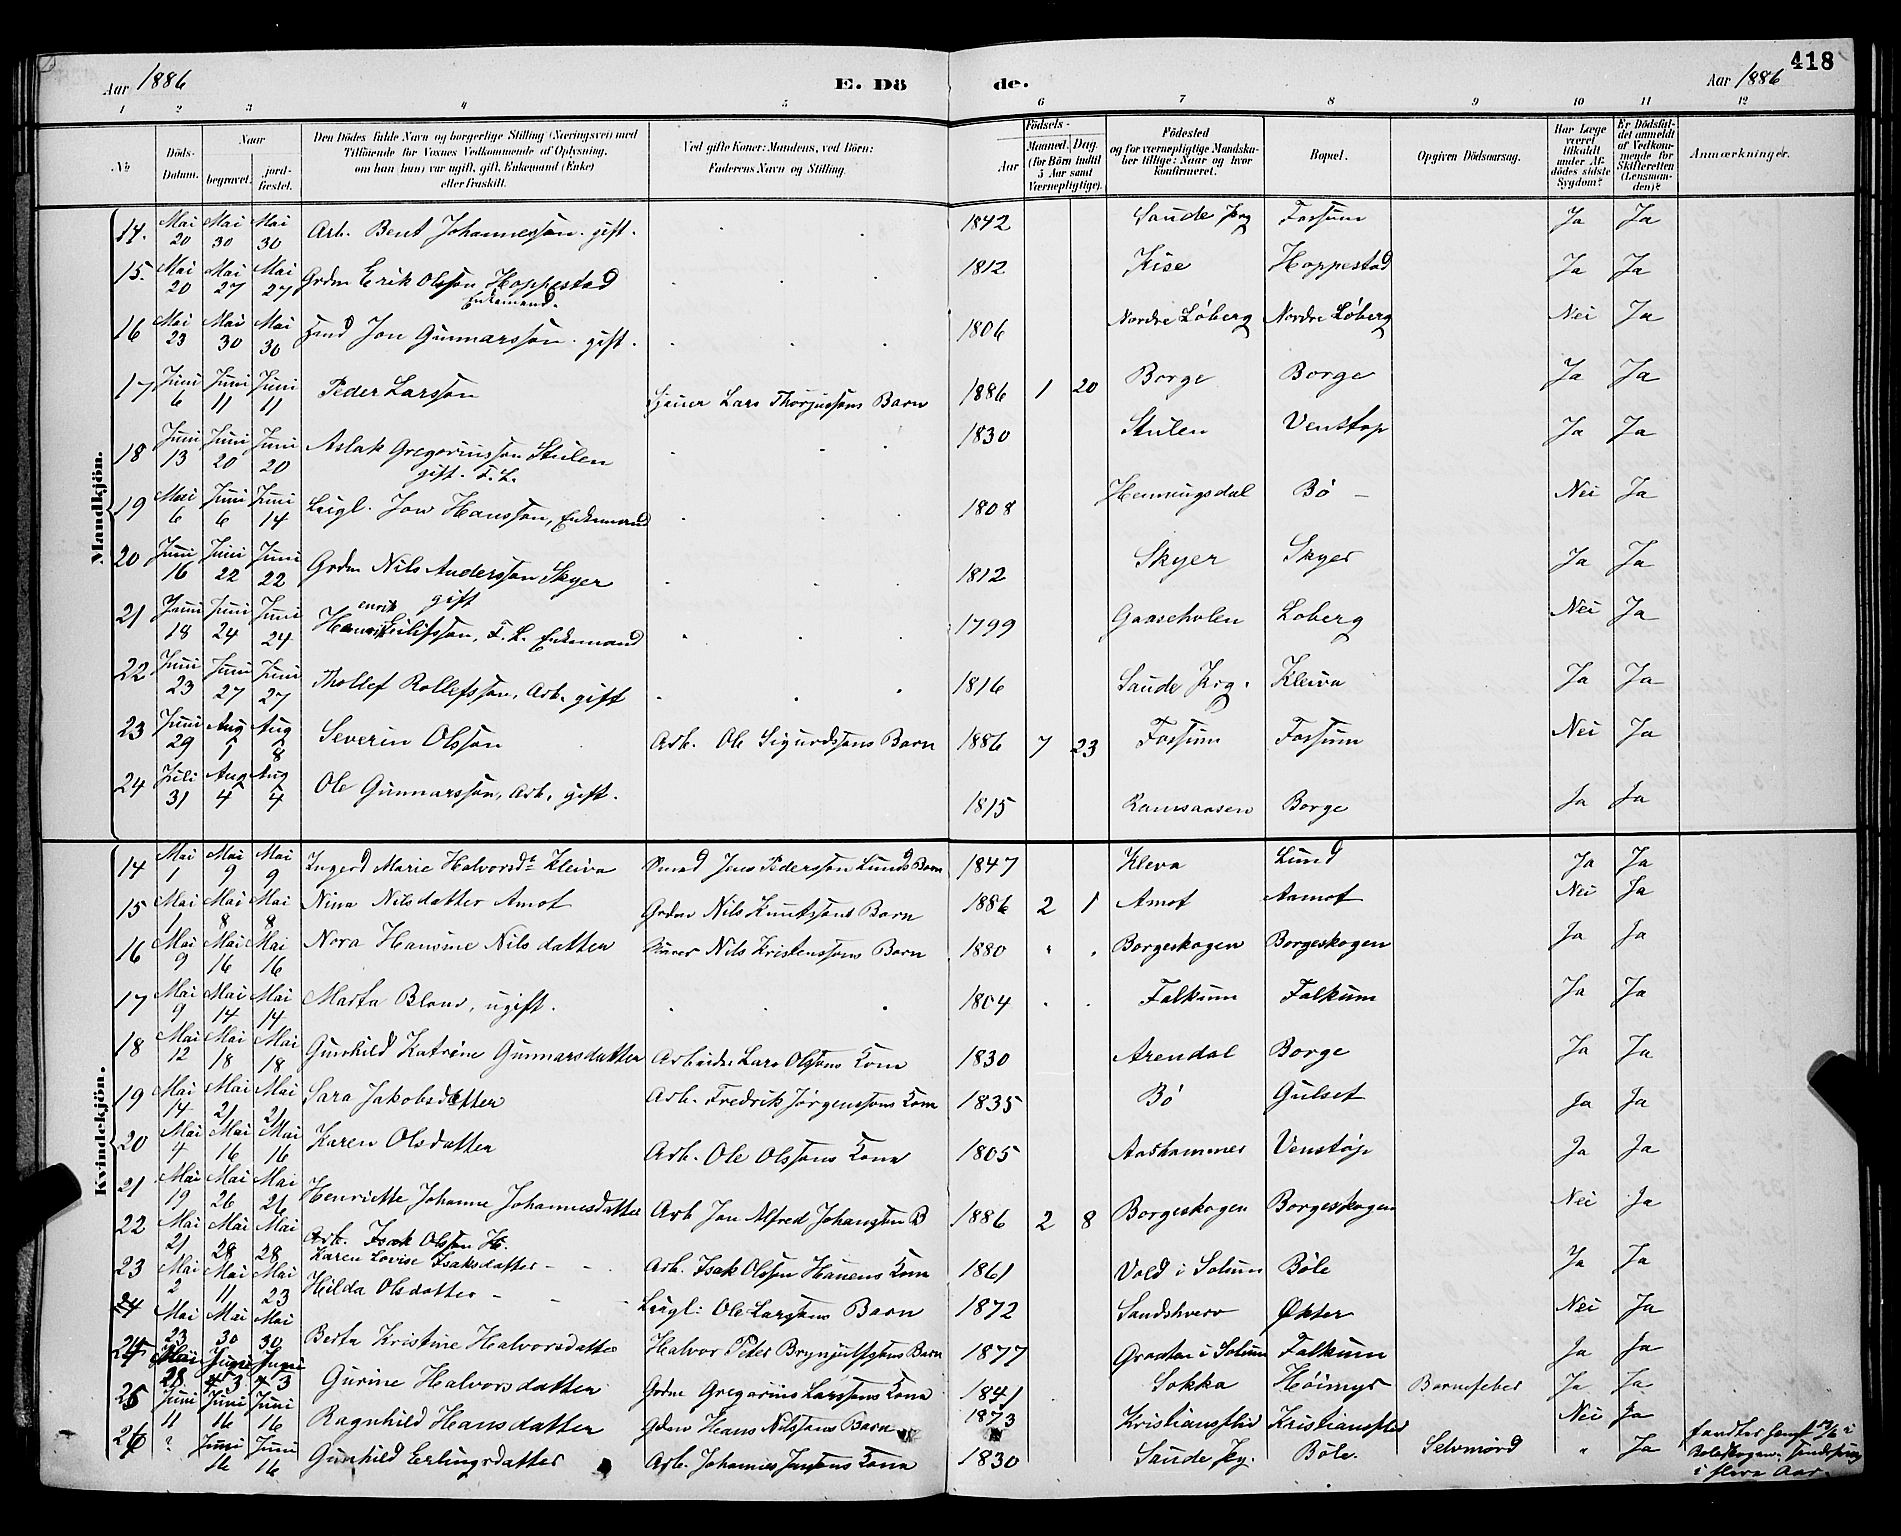 418
Aar 1886
E. Dö
de.
Aar 1886
1 2 3 4 5 6 7 8 9 10 11 12
№
Döds-Datum.
Naar
begravet.
jord-fæstet.
Den Dödes fulde Navn og borgerlige Stilling (Næringsvei) med
Tilföiende for Voxnes Vedkommende af Oplysning,
om han (hun) var ugift, gift, Enkemand (Enke)
eller fraskilt.
Ved gifte Koner: Mandens, ved Börn:
Faderens Navn og Stilling.
Födsels-
Aar
Maaned. Dag.
(for Börn indtil
5 Aar samt
Værnepligtige).
Födested
og for værnepligtige Mandska-
ber tillige: Naar og hvor
konfirmeret.
Bopæl.
Opgiven Dödsaarsag.
Har Læge
været
tilkaldt
under Af-
dödes sidste
Sygdom?
Er Dödsfal-
det anmeldt
af Vedkom-
mende for
Skifteretten
(Lensman-
den)?
Anmærkninger.
Mandkjön.
14. Mai 20 Mai 30 Mai 30 Arb. Bent Johannesson. gift. 1842 Saude Prg Fossum Ja Ja
15. Mai 20 Mai 27 Mai 27 Grdm Erik Olsson Hoppestad Enkemand. 1812 Kise Hoppestad Ja Ja
16 Mai 23 Mai 30 Mai 30 Jon Gunnarsson. gift. 1806 Nordre Löberg Nordre Löberg Nei Ja
17 Juni 6 Juni 11 Juni 11 Peder Larsson Lars Thorjussons Barn 1886 1 20 Borge Borge Ja Ja
18 Juni 13 Juni 20 Juni 20 Aslak Gregoriusson Stulen gift. F. L. 1830 Stulen Venstøp Ja Ja
19 Mai 6 Juni 6 Juni 14 Leigl. Jon Hansson, Enkemand 1808 Henningsdal Bö Nei Ja
20 Juni 16 Juni 22 Juni 22 Grdm Nils Andersson Skyer gift 1812 Skyer Skyer Ja Ja
21 Juni 18 Juni 24 Juni 24 Henrik Eilifsson, F. L. Enkemand 1799 Gaaseholen Loberg Nei Ja
22 Juni 23 Juni 27 Juni 27 Thollef Rollefsson, Arb. gift 1816 Saude Prg. Kleiva Ja Ja
23 Juni 29 Aug 1 Aug 8 Severin Olsson Arb. Ole Sigurdssons Barn 1886 7 23 Fossum Fossum Nei Ja
24 Juli 31 Aug 4 Aug 4 Ole Gunnarsson, Arb. gift. 1815 Ramsaasen Borge Ja Ja
Kvindekjön.
14 Mai 1 Mai 9 Mai 9 Ingerd Marie Halvorsdt Kleiva Jens Pederson Lunds Barn 1847 Kleva Lund Ja Ja
15 Mai 1 Mai 8 Mai 8 Nina Nilsdatter Amot Grdm Nils Knutssons Barn 1886 2 1 Amot Aamot Nei Ja
16 Mai 9 Mai 16 Mai 16 Nora Hansine Nilsdatter Nils Kristenssons Barn 1880 Borgeskogen Borgeskogen Ja Ja
17 Mai 9 Mai 14 Mai 14 Marta Blom, ugift. 1804 Falkum Falkum Ja Ja
18 Mai 12 Mai 18 Mai 18 Gunhild Katrine Gunnarsdatter Arbeider Lars Olssons Kone 1830 Arendal Borge Ja Ja
19 Mai 14 Mai 21 Mai 21 Sara Jakobsdatter Arb. Fredrik Jørgenssons Kone 1835 Bö Gulset Ja Ja
20 Mai 4 Mai 16 Mai 16 Karen Olsdatter Arb. Ole Olssons Kone 1805 Aashammer Venstøp Ja Ja
21 Mai 19 Mai 26 Mai 26 Henriette Johanne Johannesdatter Arb Jon Alfred Johansson B 1886 2 8 Borgeskogen Borgeskogen Nei Ja
22 Mai 21 Mai 28 Mai 28 Arb. Isak Olsson H. Karen Lovise Isaksdatter Arb. Isak Olsson Hauens Kone 1861 Vold i Solum Bøle Ja Ja
23 Mai 2 Mai 11 Mai 23 Hilda Olsdatter Leigl: Ole Larssons Barn 1872 Sandshverv Økter Nei Ja
24 Mai 23 Mai 30 Mai 30 Berta Kristine Halvorsdatter Halvor Peter Brynjulfsens Barn 1877 Graaten i Solum Falkum Ja Ja
25 Mai 28 Juni 3 Juni 3 Gurine Halvorsdatter Grdm Gregorius Larssons Kone 1841 Sokka Høimyr Barnefeber Ja Ja
Juni 11 Juni 16 Juni 16 Ragnhild Hansdatter Grdm Hans Nilssons Barn 1873 Kristiansflid Kristiansflid Nei Ja
26 ? Juni 16 Juni 16 Gunhild Erlingsdatter Arb. Johannes Jensens Kone 1830 Saude Prg. Bøle. Selvmord " Ja
fandtes hengt 12/6 i
Boleskogen. Sindssvag
i flere Aar.